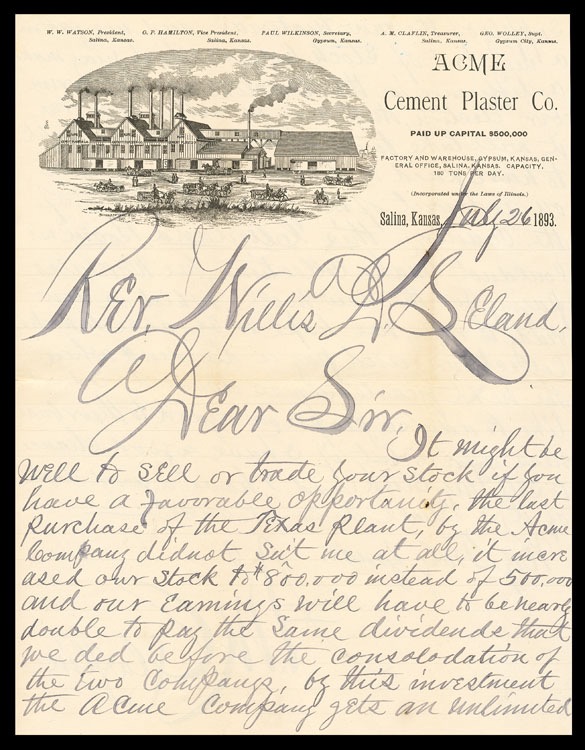 W. W. WATSON, President,
Salina, Kansas.
G. P. HAMILTON, Vice President,
Salina, Kansas.
PAUL WILKINSON, Secretary,
Gypsum, Kansas.
A. M. CLAFLIN, Treasurer,
Salina, Kansas.
GEO. WOLLEY, Supt.
Gypsum City, Kansas.
ACME
Cement Plaster Co.
PAID UP CAPITAL $500,000
FACTORY AND WAREHOUSE, GYPSUM, KANSAS, GEN-
ERAL OFFICE, SALINA, KANSAS. CAPACITY,
180 TONS PER DAY.
(Incorporated under the Laws of Illinois.)
Salina, Kansas, July 26 1893.
Rev. Willis D. Leland,
Dear Sir,
It might be
well to sell or trade your stock if you
have a favorable opportunity, the last
purchase of the Texas plant, by the Acme
Company didnot suit me at all, it incre
ased our stock to $800,000 instead of 500,000
and our Earnings will have to be nearly
double to pay the same dividends that
we ded before the consolodation of
the two Companys, by this investment
the Acme Company gets an unlimited